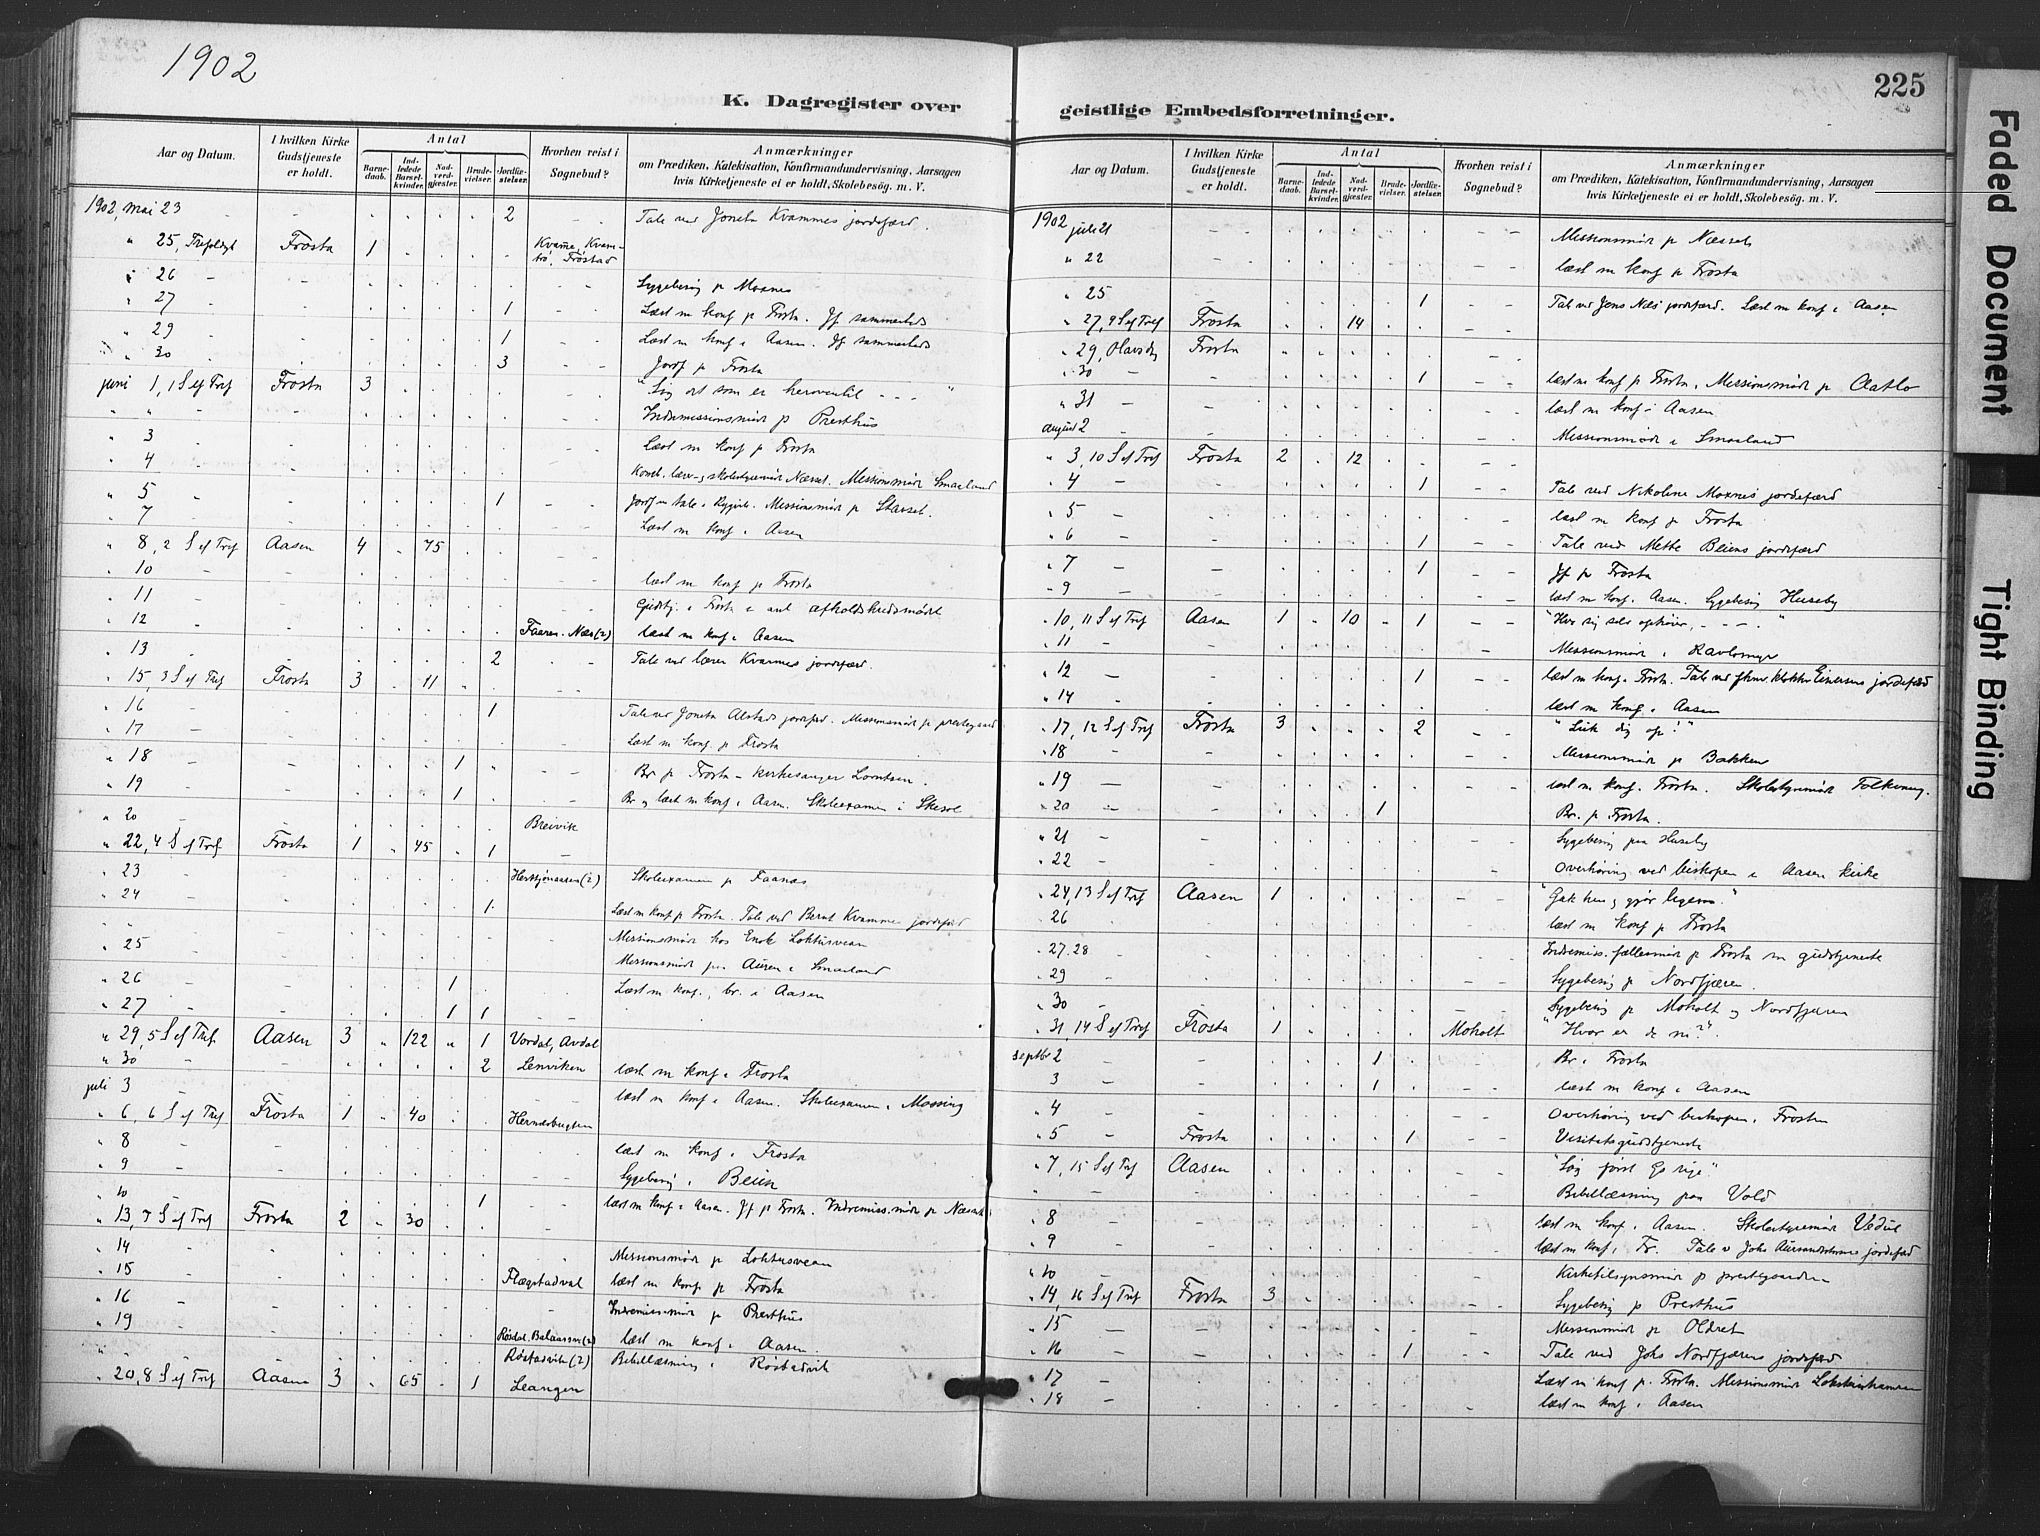 1902
225
K. Dagregister over geistlige Embedsforretninger.
Aar og Datum. I hvilken Kirke Gudstjeneste er holdt. Antal Barnedaab. Indledede Barselkvinder. Nadverdgjester. Brudevielser. Jordfæstelser. Hvorhen reist i Sognebud? Anmærkninger om Prædiken, Katekisation, Konfirmandundervisning, Aarsagen hvis Kirketjeneste ei er holdt, Skolebesøg. m. V.
1902, mai 23 2 Tale ved Joneta Kvammes jordefærd.
" 25, Trefoldgh Frosta 1 Kvame, Kvamtrø, Frøstad
" 26 Sygebesøg p Moxnes
" 27 1 Læst m konf p Frosta. Jf sammesteds
" 29 1 Læst m konf i Aasen. Jf sammesteds
" 30 3 Jordf p Frosta
juni 1, 1 S ef Tref Frosta 3 "Søg det som er heroventil - - - "
" " Indremissionsmøde p Presthus
" 3 Læst m konf p Frosta
" 4 skolestyremøde Næsset. Messionsmøde Smaaland
" 5 1 Jordf m tale i Messionsmøde p Stavset.
" 7 Læst m konf i Aasen
" 8, 2 S ef Tref Aasen 4 " 75
" 10 læst m konf p Frosta
" 11 Gudstj. i Frosta i anl afholdskredsmøde
" 12 Faaren. Næs (2) læst m konf i Aasen
" 13 2 Tale ved lærer Kvammes jordefærd.
" 15, 3 S ef Tref Frosta 3 " 11
" 16 1 Tale ved Joneta Alstads jordefærd. Messionsmøde p prestegaard
" 17 Læst m konf. p Frosta
" 18 1 Br p Frosta - kirkesanger Lorntsen.
" 19 1 Br og læst m konf i Aasen. Skoleexamen i
" 20 Breivik
" 22, 4 S ef Tref Frosta 1 " 45 1
" 23 (2) Skoleexamen p Faanes
" 24 1 Læst m konf p Frosta. Tale ved Bernt Kvammes jordefærd
Messionsmøde hos Enok Loktusveen
" 25 Messionsmøde paa Auren i Smaaland
" 26 1 Læst m konf., br. i Aasen
" 27 1 1
" 29, 5 S ef Tref Aasen 3 " 122 " 1 Vordal, Avdal
" 30 2 Lenviken læst m konf i Frosta
juli 3 læst m konf i Aasen. Skoleexamen i Mossing
" 6, 6 S ef Tref Frosta 1 " 40 Hernesbugten
" 8 læst m konf i Frosta
" 9 Sygebesøg i Bein
" 10 1 læst m konf i Aasen. Jf p Frosta. Indremiss. møde p Næsset
" 13, 7 S ef Tref Frosta 2 " 30
" 14 Messionsmøde p Loktusveen
" 15 Flægstadval læst m konf p Frosta
" 16 Indremiss. møde p Presthus
" 19 Røsdal. (2) læst m konf i Aasen.
Røstadvik (2) Bibellæsning i Røstadvik
" 20, 8 S ef Tref Aasen 3 " 65 1 Leangen
Aar og Datum. I hvilken Kirke Gudstjeneste er holdt. Antal Barnedaab. Indledede Barselkvinder. Nadverdgjester. Brudevielser. Jordfæstelser. Hvorhen reist i Sognebud? Anmærkninger om Prædiken, Katekisation, Konfirmandundervisning, Aarsagen hvis Kirketjeneste ei er holdt, Skolebesøg. m. V.
1902 juli 21 Messionsmøde p Næsset
" 22 læst m konf p Frosta
" 25 1 Tale ved Jens Næs jordefærd. Læst m konf i Aasen
" 27, 9 S ef Tref Frosta 14
" 29, Olavsdg Frosta
" 30 1 læst m konf p Frosta, Messionsmøde p Aatlo
" 31 læst m konf i Aasen
august 2 Messionsmøde i Smaaland
" 3, 10 S ef Tref Frosta 2 " 12
" 4 1 Tale ved Nikoline Moxnes jordefærd
" 5 læst m konf p Frosta
" 6 1 Tale ved Mette Beiens jordefærd
" 7 1 Jf p Frosta
" 9 læst m konf i Aasen. Sygebesøg Huseby
" 10, 11 S ef Tref Aasen 1 " 10 " 1 "Hver sig selv ophøier, - - - "
" 11 Messionsmøde i Ravlomyr
" 12 1 læst m konf i Frosta. Tale ved fhnv. klokker Einersens jordefærd
" 14 læst m konf. i Aasen
" 17, 12 S ef Tref Frosta 3 " " " 2 "Luk dig op!"
" 18 Messionsmøde p Bakken
" 19 læst m konf. Frosta. Skolestyremøde Folkvang.
" 20 1 Br. p Frosta.
" 21 Sygebesøg paa Huseby
" 22 Overhøring ved biskopen i Aasen kirke
" 24, 13 S ef Tref Aasen 1 "Gak hen og gjør ligesaa."
" 26 læst m konf p Frosta
" 27. 28 Indremiss. fællesmøde p Frosta m gudstjeneste
" 29 Sygebesøg p Nordfjæren.
" 30 Sygebesøg p Moholt og Nordfjæren
" 31, 14 S ef Tref Frosta 1 Moholt "Hvor er de ni?"
septbr 2 1 Br i Frosta
3 1 læst m konf i Aasen
" 4 Overhøring ved biskopen i Frosta
" 5 Frosta 1 Visitatsgudstjeneste
" 7, 15 S ef Tref Aasen "Søg først Gs rige"
" Bibellæsning paa Vold
" 8 læst m konf i Aasen. Skolestyremøde Vedul
" 9 læst m konf i Fr. Tale v Johs jordefærd
" 10 Kirketilsynsmøde p prestegaarden
" 14, 16 S ef Tref Frosta 3 Sygebesøg p Presthus
" 15 Messionsmøde p Oldret
" 16 1 Tale ved Johs Nordfjærens jordefærd
" 17 Læst m konf p Frosta. Messionsmøde
" 18 læst m konf i Aasen
Faded Document
Tight Binding